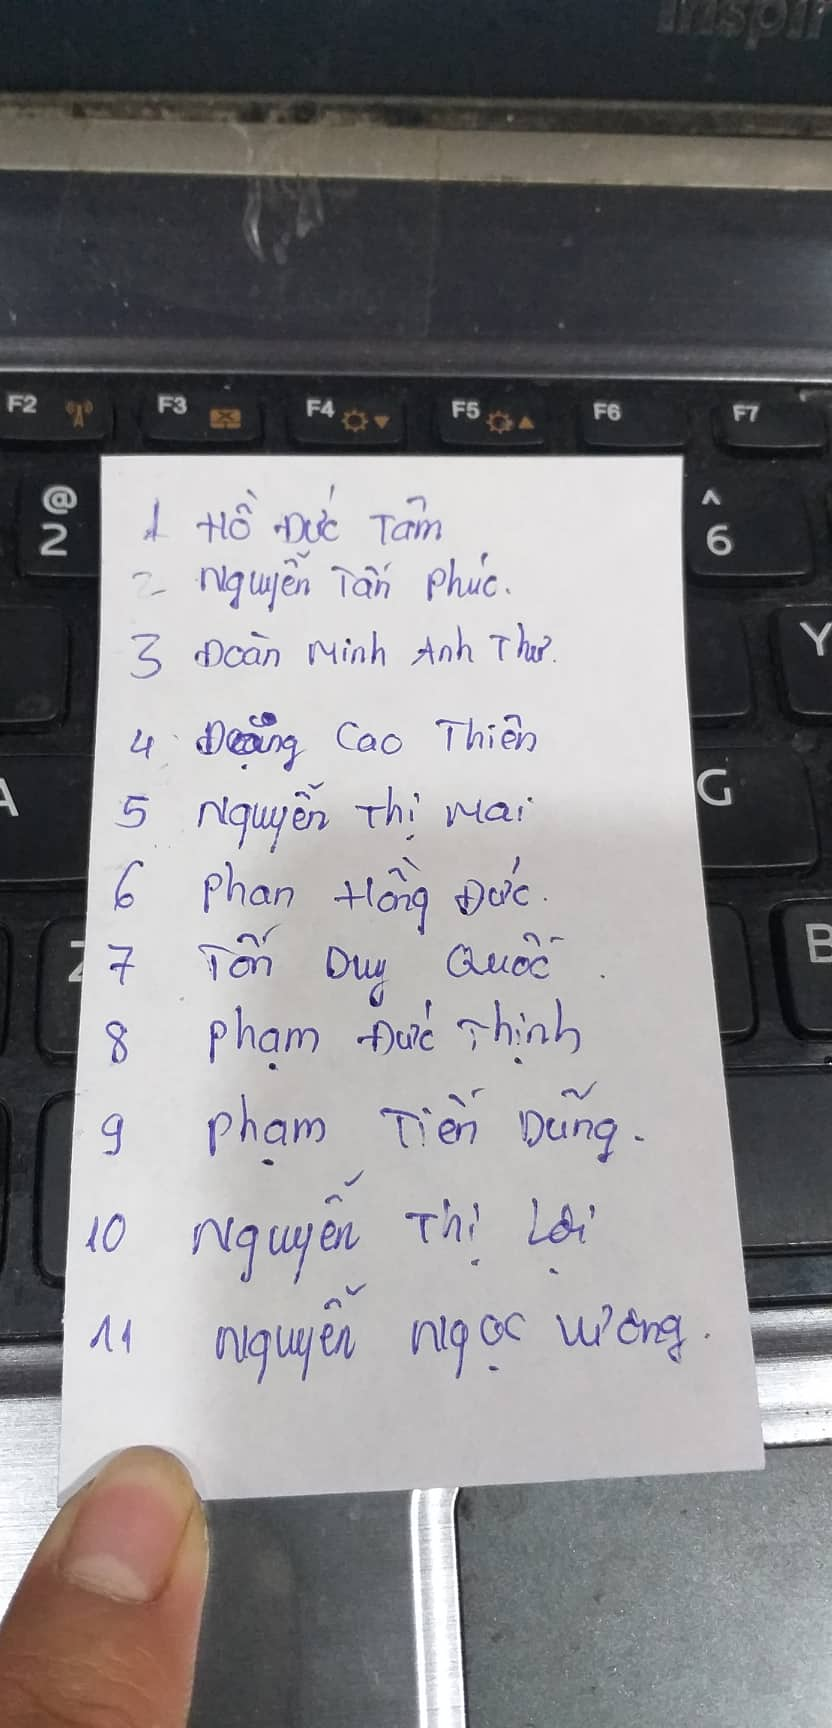 Inspir
F2 F3 F4 F5 F6 F7
@ 2
^ 6
Y
A
G
Z
B
1 Hồ Đức Tâm
2 Nguyễn Tấn Phúc.
3 Đoàn Minh Anh Thư.
4 Đặng Cao Thiên
5 Nguyễn Thị Mai
6 Phan Hồng Đức.
7 Tôn Duy Quốc.
8 Phạm Đức Thịnh
9 Phạm Tiến Dũng.
10 Nguyễn Thị Lợi
11 Nguyễn Ngọc Vương.